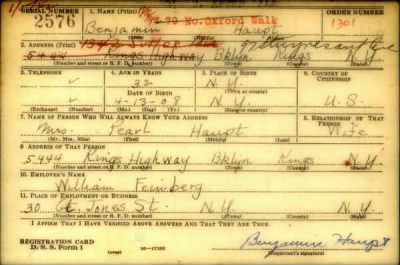 SERIAL NUMBER 1. NAME (Print) ORDER NUMBER
2576 Benjamin Haupt 1301
79 No. Oxford Walk
(First) (Middle) (Last)
2. ADDRESS (Print)
5444 Kings Highway Bklyn Kings N.Y.
(Number and street or R. F. D. number) (Town) (County) (State)
3. TELEPHONE 4. AGE IN YEARS 5. PLACE OF BIRTH 6. COUNTRY OF CITIZENSHIP
32 N.Y.
DATE OF BIRTH (Town or county)
4-13-08 N.Y. U.S.
(Exchange) (Number) (Mo.) (Day) (Yr.) (State or country)
7. NAME OF PERSON WHO WILL ALWAYS KNOW YOUR ADDRESS 8. RELATIONSHIP OF THAT PERSON
Mrs. Pearl Haupt Wife
(Mr., Mrs., Miss) (First) (Middle) (Last)
9. ADDRESS OF THAT PERSON
5444 Kings Highway Bklyn Kings N.Y.
(Number and street or R. F. D. number) (Town) (County) (State)
10. EMPLOYER'S NAME
William Feinberg
11. PLACE OF EMPLOYMENT OR BUSINESS
30 Jones St. N.Y. N.Y.
(Number and street or R. F. D. number) (Town) (County) (State)
I AFFIRM THAT I HAVE VERIFIED ABOVE ANSWERS AND THAT THEY ARE TRUE.
REGISTRATION CARD
D. S. S. Form 1 (over) Benjamin Haupt
(Registrant's signature)